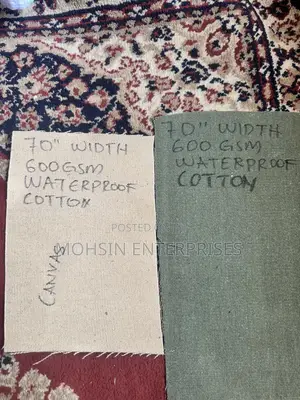 70" WIDTH
600GSM
WATERPROOF
COTTON
CANVAS
70" WIDTH
600 GSM
WATERPROOF
COTTON
POSTED
MOHSIN ENTERPRISES